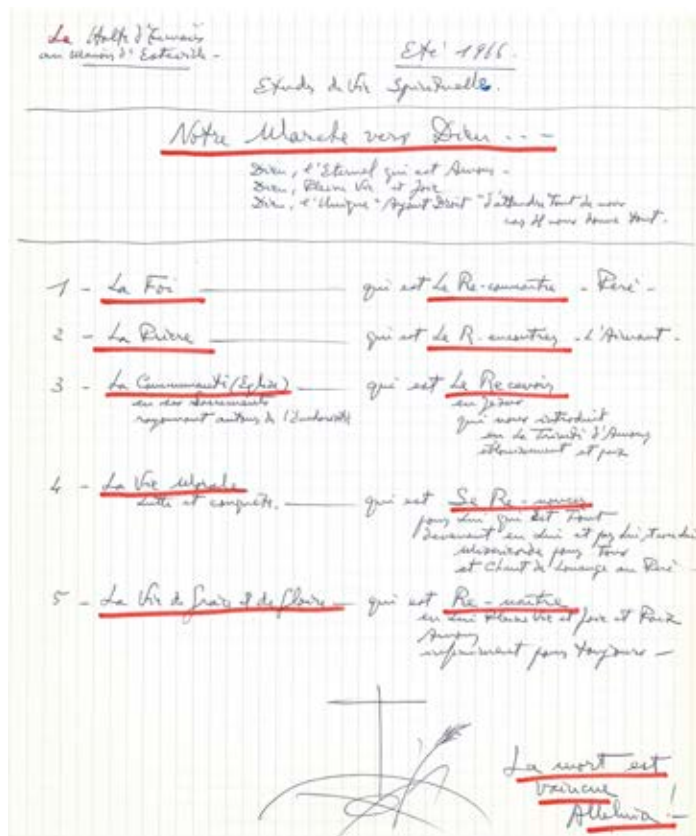 La Halte d'Emmaüs
au Manoir d'Esteville -
Eté 1966.
Etudes de Vie Spirituelle.
Notre Marche vers Dieu ---
Dieu, l'Eternel qui est Amour -
Dieu, Pleine Vie et Joie
Dieu, l'Unique "Ayant Droit" d'attendre Tout de nous
car Il nous donne tout.
1 - La Foi — qui est Le Re-connaître - Père -
2 - La Prière — qui est Le R-encontrer - L'Aimant -
3 - La Communauté (Eglise) — qui est Le Recevoir
en ses Sacrements
rayonnant autour de l'Eucharistie
en Jésus
qui nous introduit
en La Trinité d'Amour
et paix
4 - La Vie Morale
Lutte et conquête. — qui est Se Re-noncer
pour Lui qui est Tout
devenant en Lui et par Lui,
Miséricorde pour Tous
et Chant de Louange au Père -
5 - La Vie de Grâce et de Gloire — qui est Re-naître
en Lui Pleine Vie et Joie et Paix
Amour
infiniment pour toujours -
La mort est
vaincue
Alleluia !